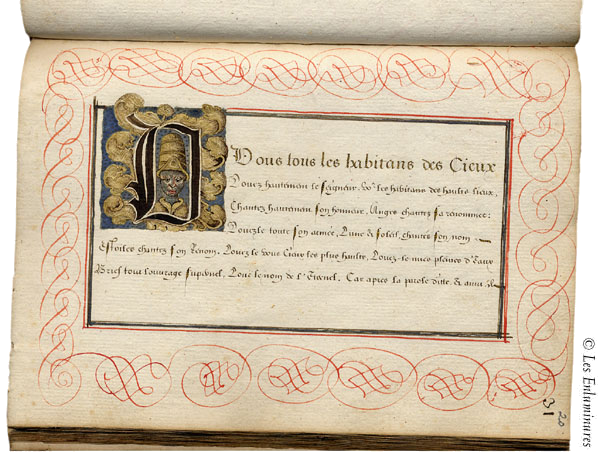 Vous tous les habitans des Cieux
Louez hautement le seigneur, vo⁹ les habitans des haults lieux,
Chantez hautement son honneur, Anges chantez sa renommee:
Louezle toute son armee, Lune & soleil, chantez son nom.
Estoiles chantez son Renom. Louez le vous Cieux les plus haults, Louez-le nues pleines d'eaux
Brief tout louvrage supernel, Loue le nom de l'Eternel. Car apres la parole ditte, &
20
31
© Les Enluminures